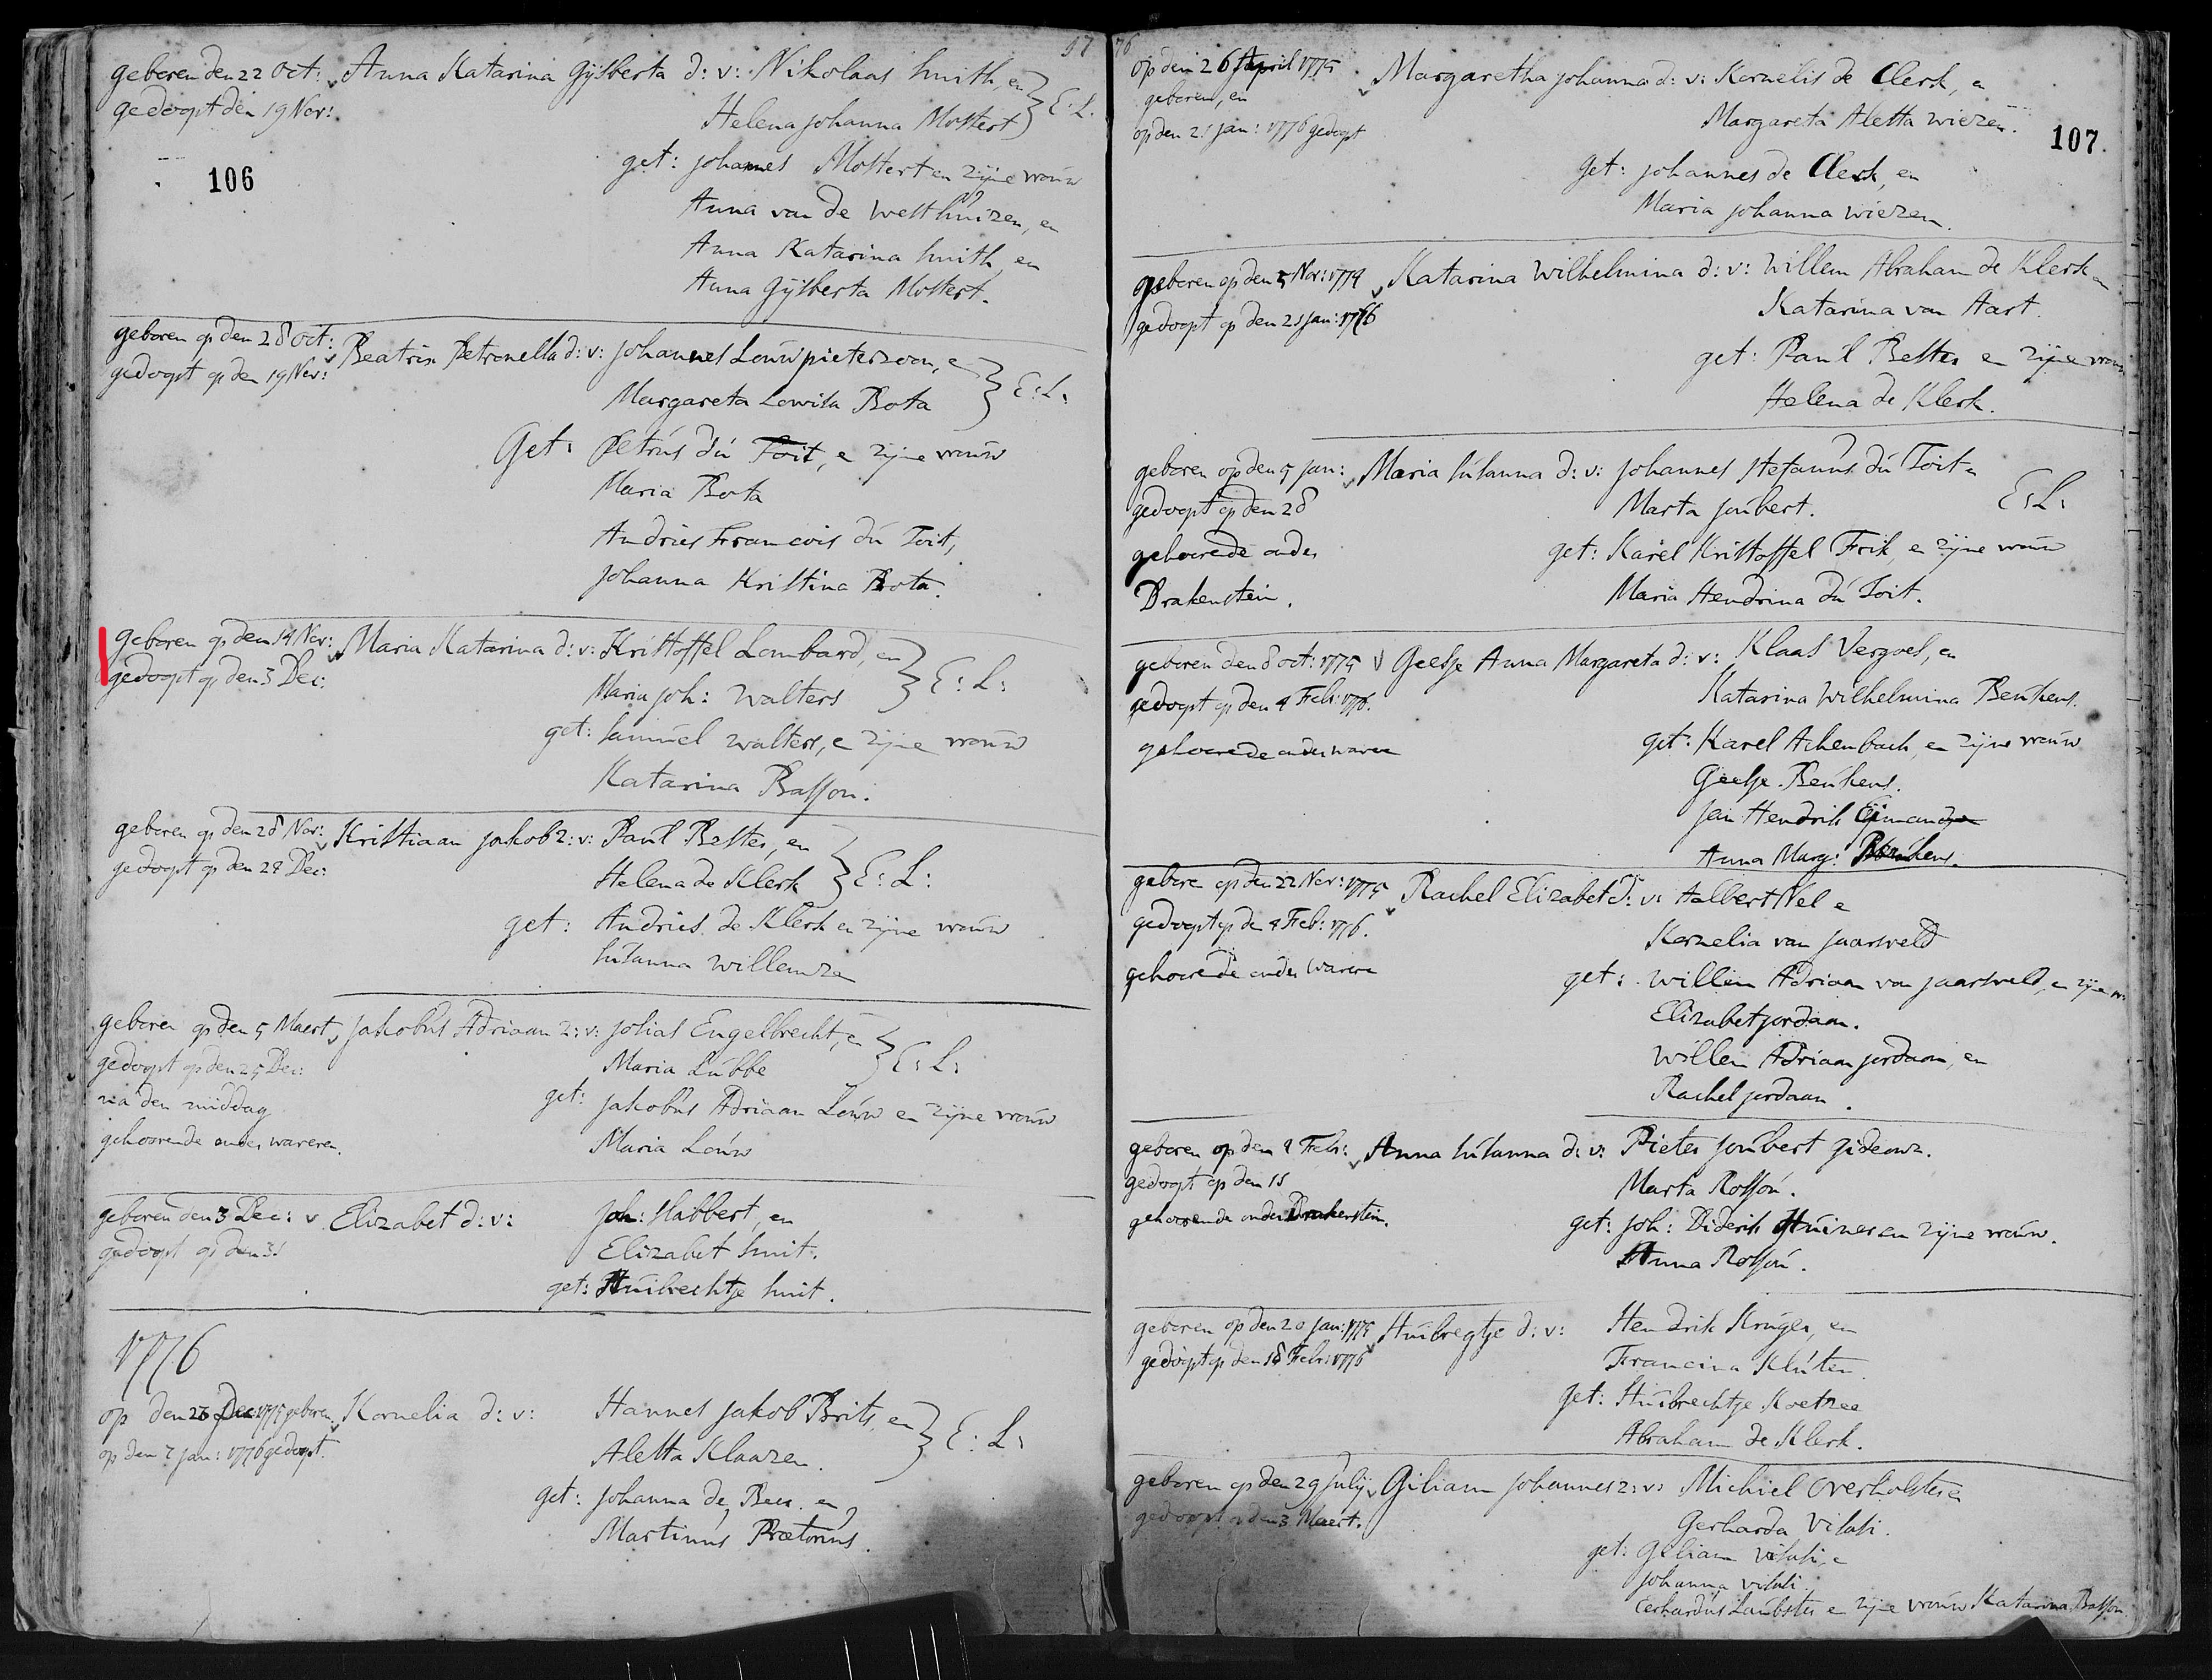 97
geboren den 22 Oct: Anna Katarina Gijsberta d: v: Nikolaas Smith, en
gedoopt den 19 Nov: Helena Johanna Mostert } E: L.
106
get: Johannes Mostert en zijne vrouw
Anna van de Westhuizen, en
Anna Katarina Smith, en
Anna Gijsberta Mostert.
geboren op den 28 Oct: Beatrix Petronella d: v: Johannes Louw pieterzoon, e
gedoopt op den 19 Nov: Margareta Lowisa Bota } E: L:
Get: Petrus du Toit, e zijne vrouw
Maria Bota
Andries Francois du Toit,
Johanna Kristina Bota.
geboren op den 14 Nov: Maria Katarina d: v: Kristoffel Lombard, en
gedoopt op den 3 Dec: Maria Joh: Walters } E: L:
get: Samuel Walters, e zijne vrouw
Katarina Basson.
geboren op den 28 Nov: Kristiaan Jakob z: v: Paul Bester, en
gedoopt op den 24 Dec: Helena de Klerk } E: L:
get: Andries de Klerk en zijne vrouw
Susanna Willemze
geboren op den 5 Maert Jakobus Adriaan z: v: Josias Engelbrecht, e
gedoopt op den 25 Dec: Maria Lubbe } E: L:
na den middag
get: Jakobus Adriaan Louw en zijne vrouw
gehoorende onder waveren.
Maria Louw
geboren den 3 Dec: Elizabet d: v: Joh: Habbert, en
gedoopt op den 31 Elizabet Smit.
get: Huibrechtje Smit.
1776
op den 26 Dec 1775 geboren Kornelia d: v: Hannes Jakob Brits, en
op den 7 Jan: 1776 gedoopt. Aletta Klaazen. } E: L:
get: Johanna de Beer en
Martinus Prætorius.
76
op den 26 April 1775 Margaretha Johanna d: v: Kornelis de Clerk, e
geboren, en
op den 21 Jan: 1776 gedoopt Margareta Aletta Wiezen.
107.
get: Johannes de Clerk, en
Maria Johanna Wiezen.
geboren op den 5 Nov: 1774 Katarina Wilhelmina d: v: Willem Abraham de Klerk en
gedoopt op den 21 Jan: 1776 Katarina van Aart.
get: Paul Bester e zijne vrouw
Helena de Klerk.
geboren op den 5 Jan: Maria Susanna d: v: Johannes Stefanus du Toit e
gedoopt op den 28 Marta Joubert. E: L:
gehoorende onder get: Karel Kristoffel Frik, e zijne vrouw
Drakenstein. Maria Hendrina du Toit.
geboren den 8 Oct: 1775 Geesje Anna Margareta d: v: Klaas Vergoes, en
gedoopt op den 4 Feb: 1776. Katarina Wilhelmina Beukens.
gehoorende onder waveren get: Karel Achenbach, en zijne vrouw
Geesje Beukens.
Jan Hendrik
Anna Marg: Beukens.
geboren op den 22 Nov: 1775 Rachel Elizabet d: v: Aalbert Nel e
gedoopt op de 4 Feb: 1776. Kornelia van Jaarsveld
gehoorende onder waveren get: Willem Adriaan van Jaarsveld, en zijne vr:
Elizabet Jordaan.
Willem Adriaan Jordaan, en
Rachel Jordaan.
geboren op den 4 Feb: Anna Susanna d: v: Pieter Joubert Gideonz.
gedoopt op den 18 Marta Rossou.
gehoorende onder Drakenstein. get: Joh: Diderik en zijne vrouw.
Anna Rossou.
geboren op den 20 Jan: 1775 Huibregtje d: v: Hendrik Kruger, en
gedoopt op den 18 Feb: 1776 Francina Kluten.
get: Huibrechtje Koetzee
Abraham de Klerk.
geboren op den 29 Julij Giliam Johannes z: v: Michiel Overholster e
gedoopt op den 3 Maert. Gerharda Visasi.
get: Giliam Visasi, e
Johanna Visasi.
Gerhardus Laubster e zijne vrouw Katarina Basson.